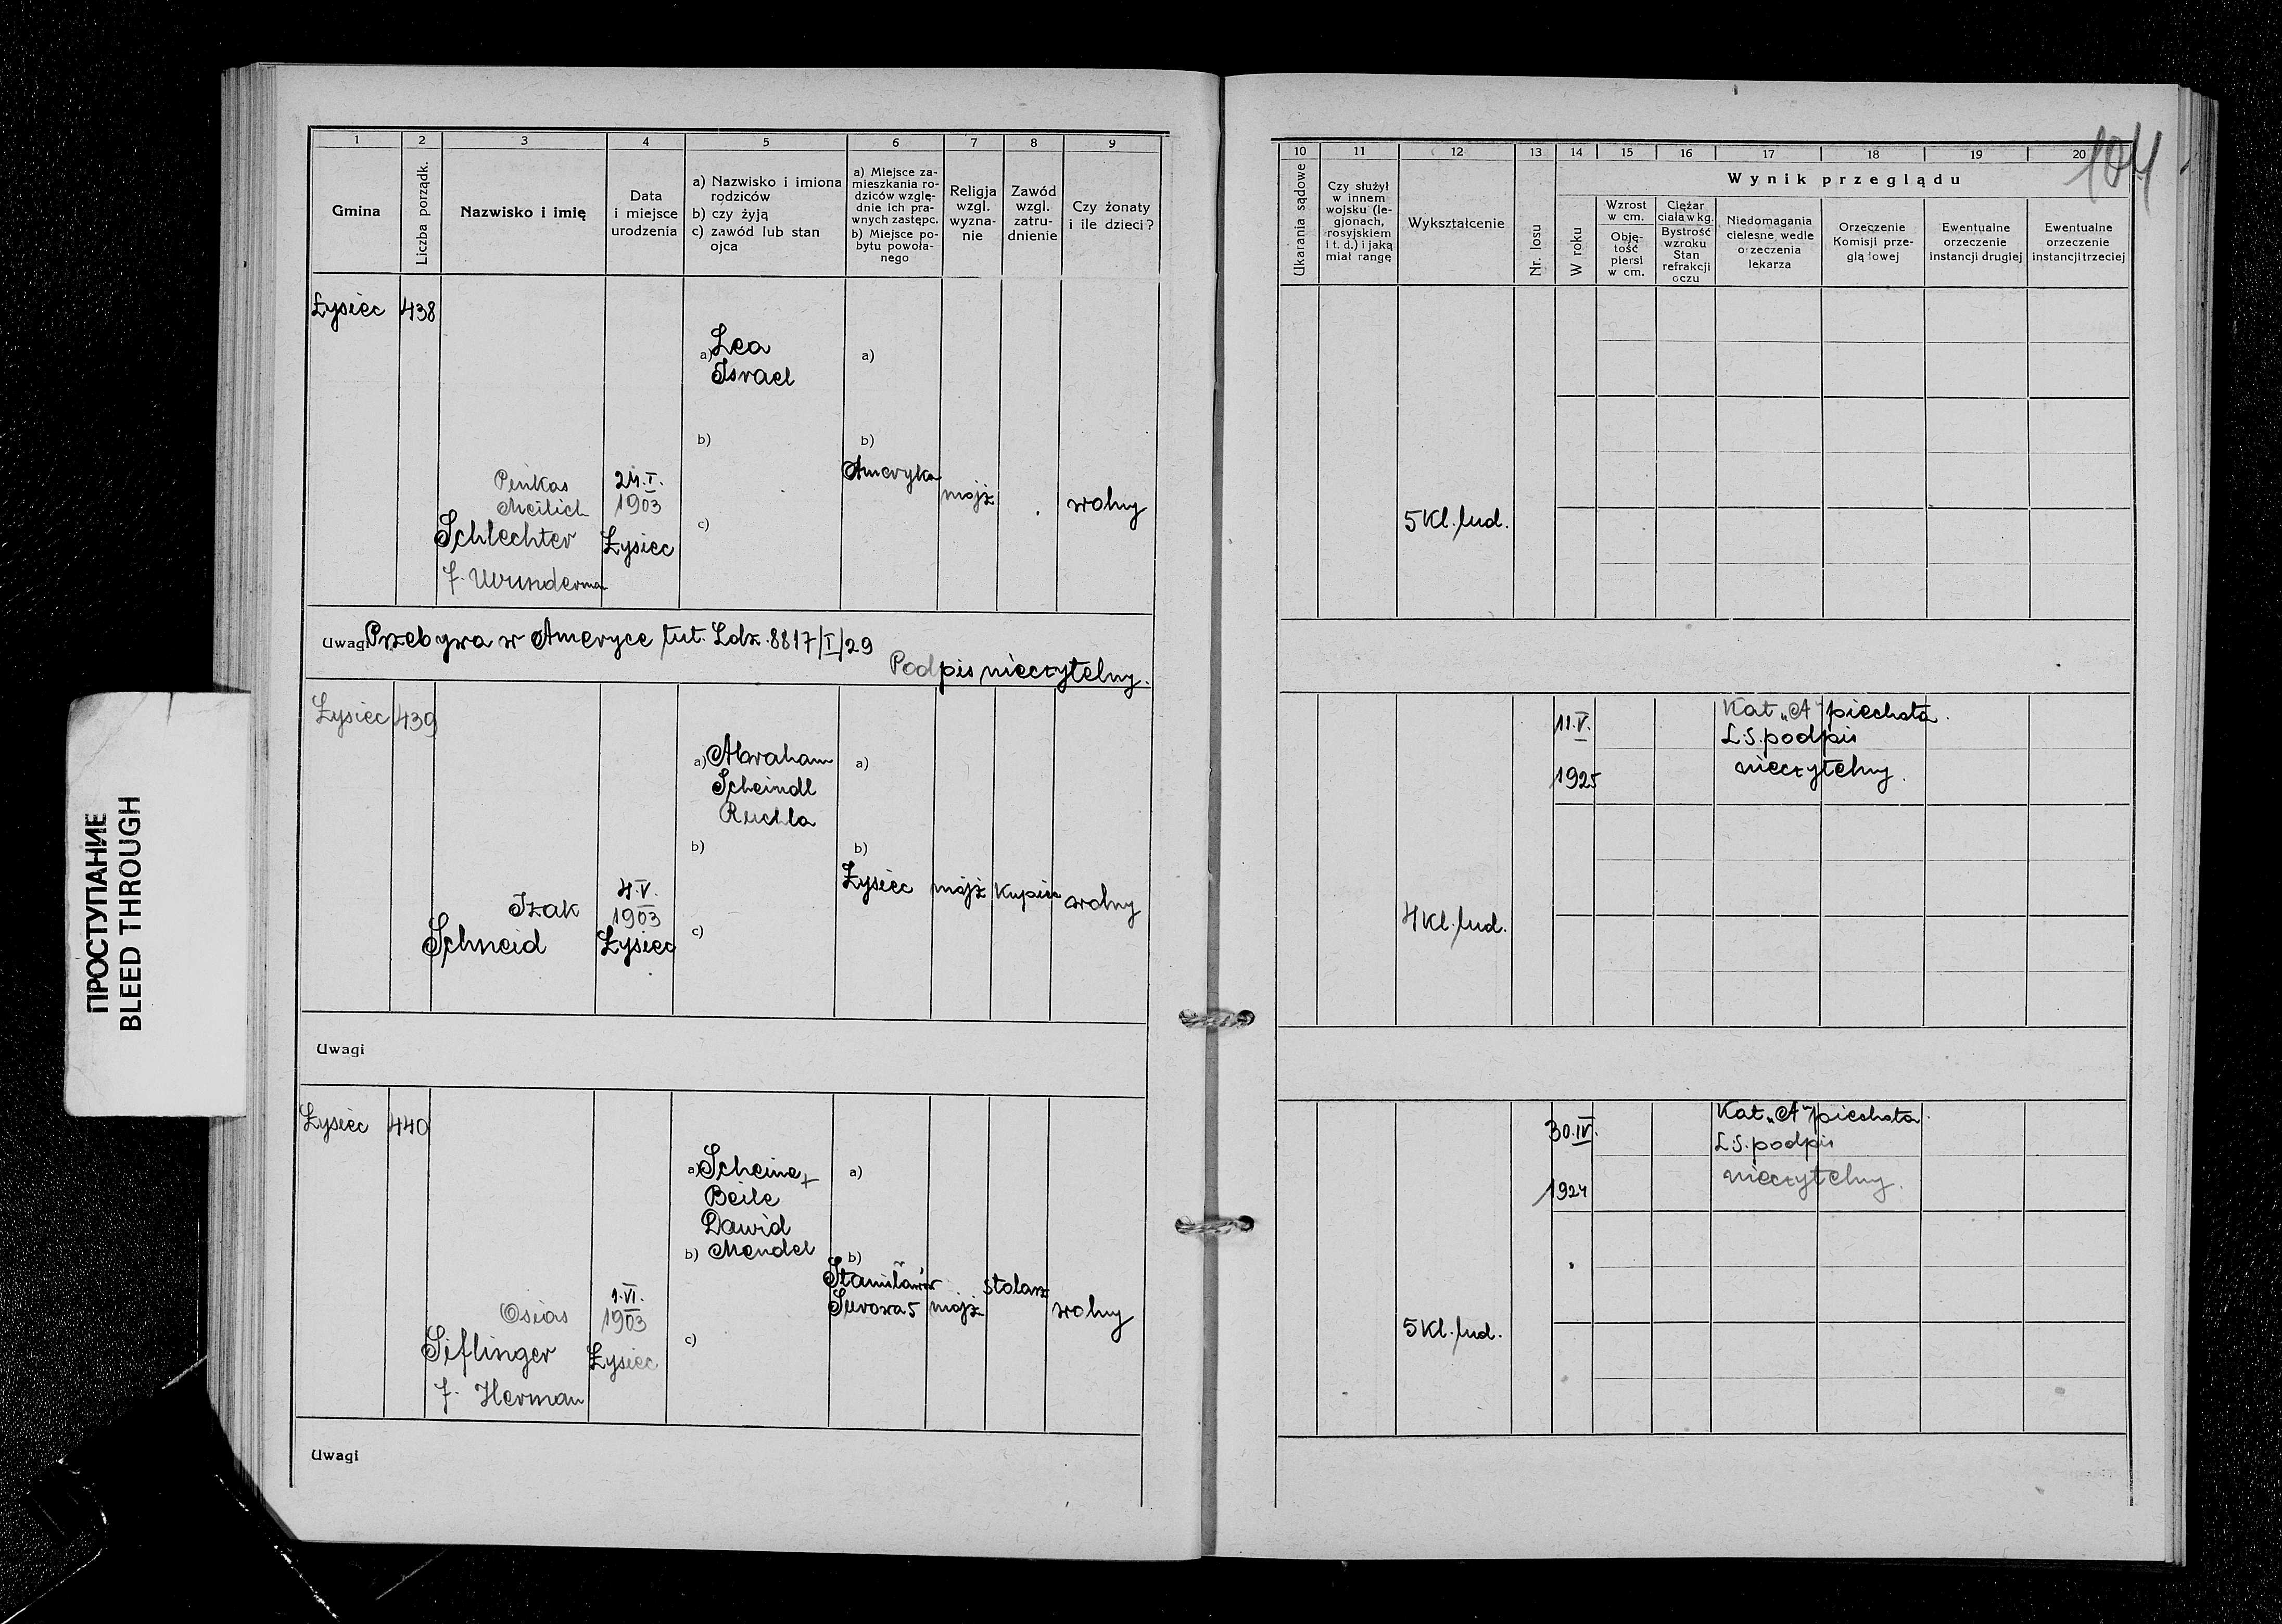 1 2 3 4 5 6 7 8 9
Gmina
Liczba porządk.
Nazwisko i imię
Data
i miejsce
urodzenia
a) Nazwisko i imiona
rodziców
b) czy żyją
c) zawód lub stan
ojca
a) Miejsce za-
mieszkania ro-
dziców wzglę-
dnie ich pra-
wnych zastępc.
b) Miejsce po-
bytu powoła-
nego
Religja
wzgl.
wyzna-
nie
Zawód
wzgl.
zatru-
dnienie
Czy żonaty
i ile dzieci?
Łysiec 438
a) Lea
Israel
a)
b)
b)
Ameryka
Pinkas
Meilich
Schlechter
f. Wunderman
24.I.
1903
Łysiec
c)
mojż
wolny
Uwagi Przebywa w Ameryce tut. Ldz. 8817/I/29
Podpis nieczytelny.
Łysiec 439
a) Abraham
Scheindl
Ruchla
a)
b)
b)
Łysiec mojż Kupiec wolny
Izak
Schneid
4.V.
1903
Łysiec
c)
Uwagi
Łysiec 440
a) Scheine
Beile
Dawid
b) Mendel
a)
b)
Stanisławów
Surowa 5 mojż stolarz wolny
Osias
Siflinger
f. Herman
1.VI.
1903
Łysiec
c)
Uwagi
10 11 12 13 14 15 16 17 18 19 20
104
Ukarania sądowe
Czy służył
w innem
wojsku (le-
gjonach,
rosyjskiem
i t. d.) i jaką
miał rangę
Wykształcenie
Nr. losu
Wynik przeglądu
W roku
Wzrost
w cm.
Obję-
tość
piersi
w cm.
Ciężar
ciała w kg.
Bystrość
wzroku
Stan
refrakcji
oczu
Niedomagania
cielesne wedle
orzeczenia
lekarza
Orzeczenie
Komisji prze-
glą lowej
Ewentualne
orzeczenie
instancji drugiej
Ewentualne
orzeczenie
instancji trzeciej
5 Kl. lud.
11.V.
1925
Kat „A" piechota.
L.S. podpis
nieczytelny.
4 Kl. lud.
30.IV.
1924
Kat „A" piechota.
L.S. podpis
nieczytelny.
5 Kl. lud.
ПРОСТУПАНИЕ
BLEED THROUGH